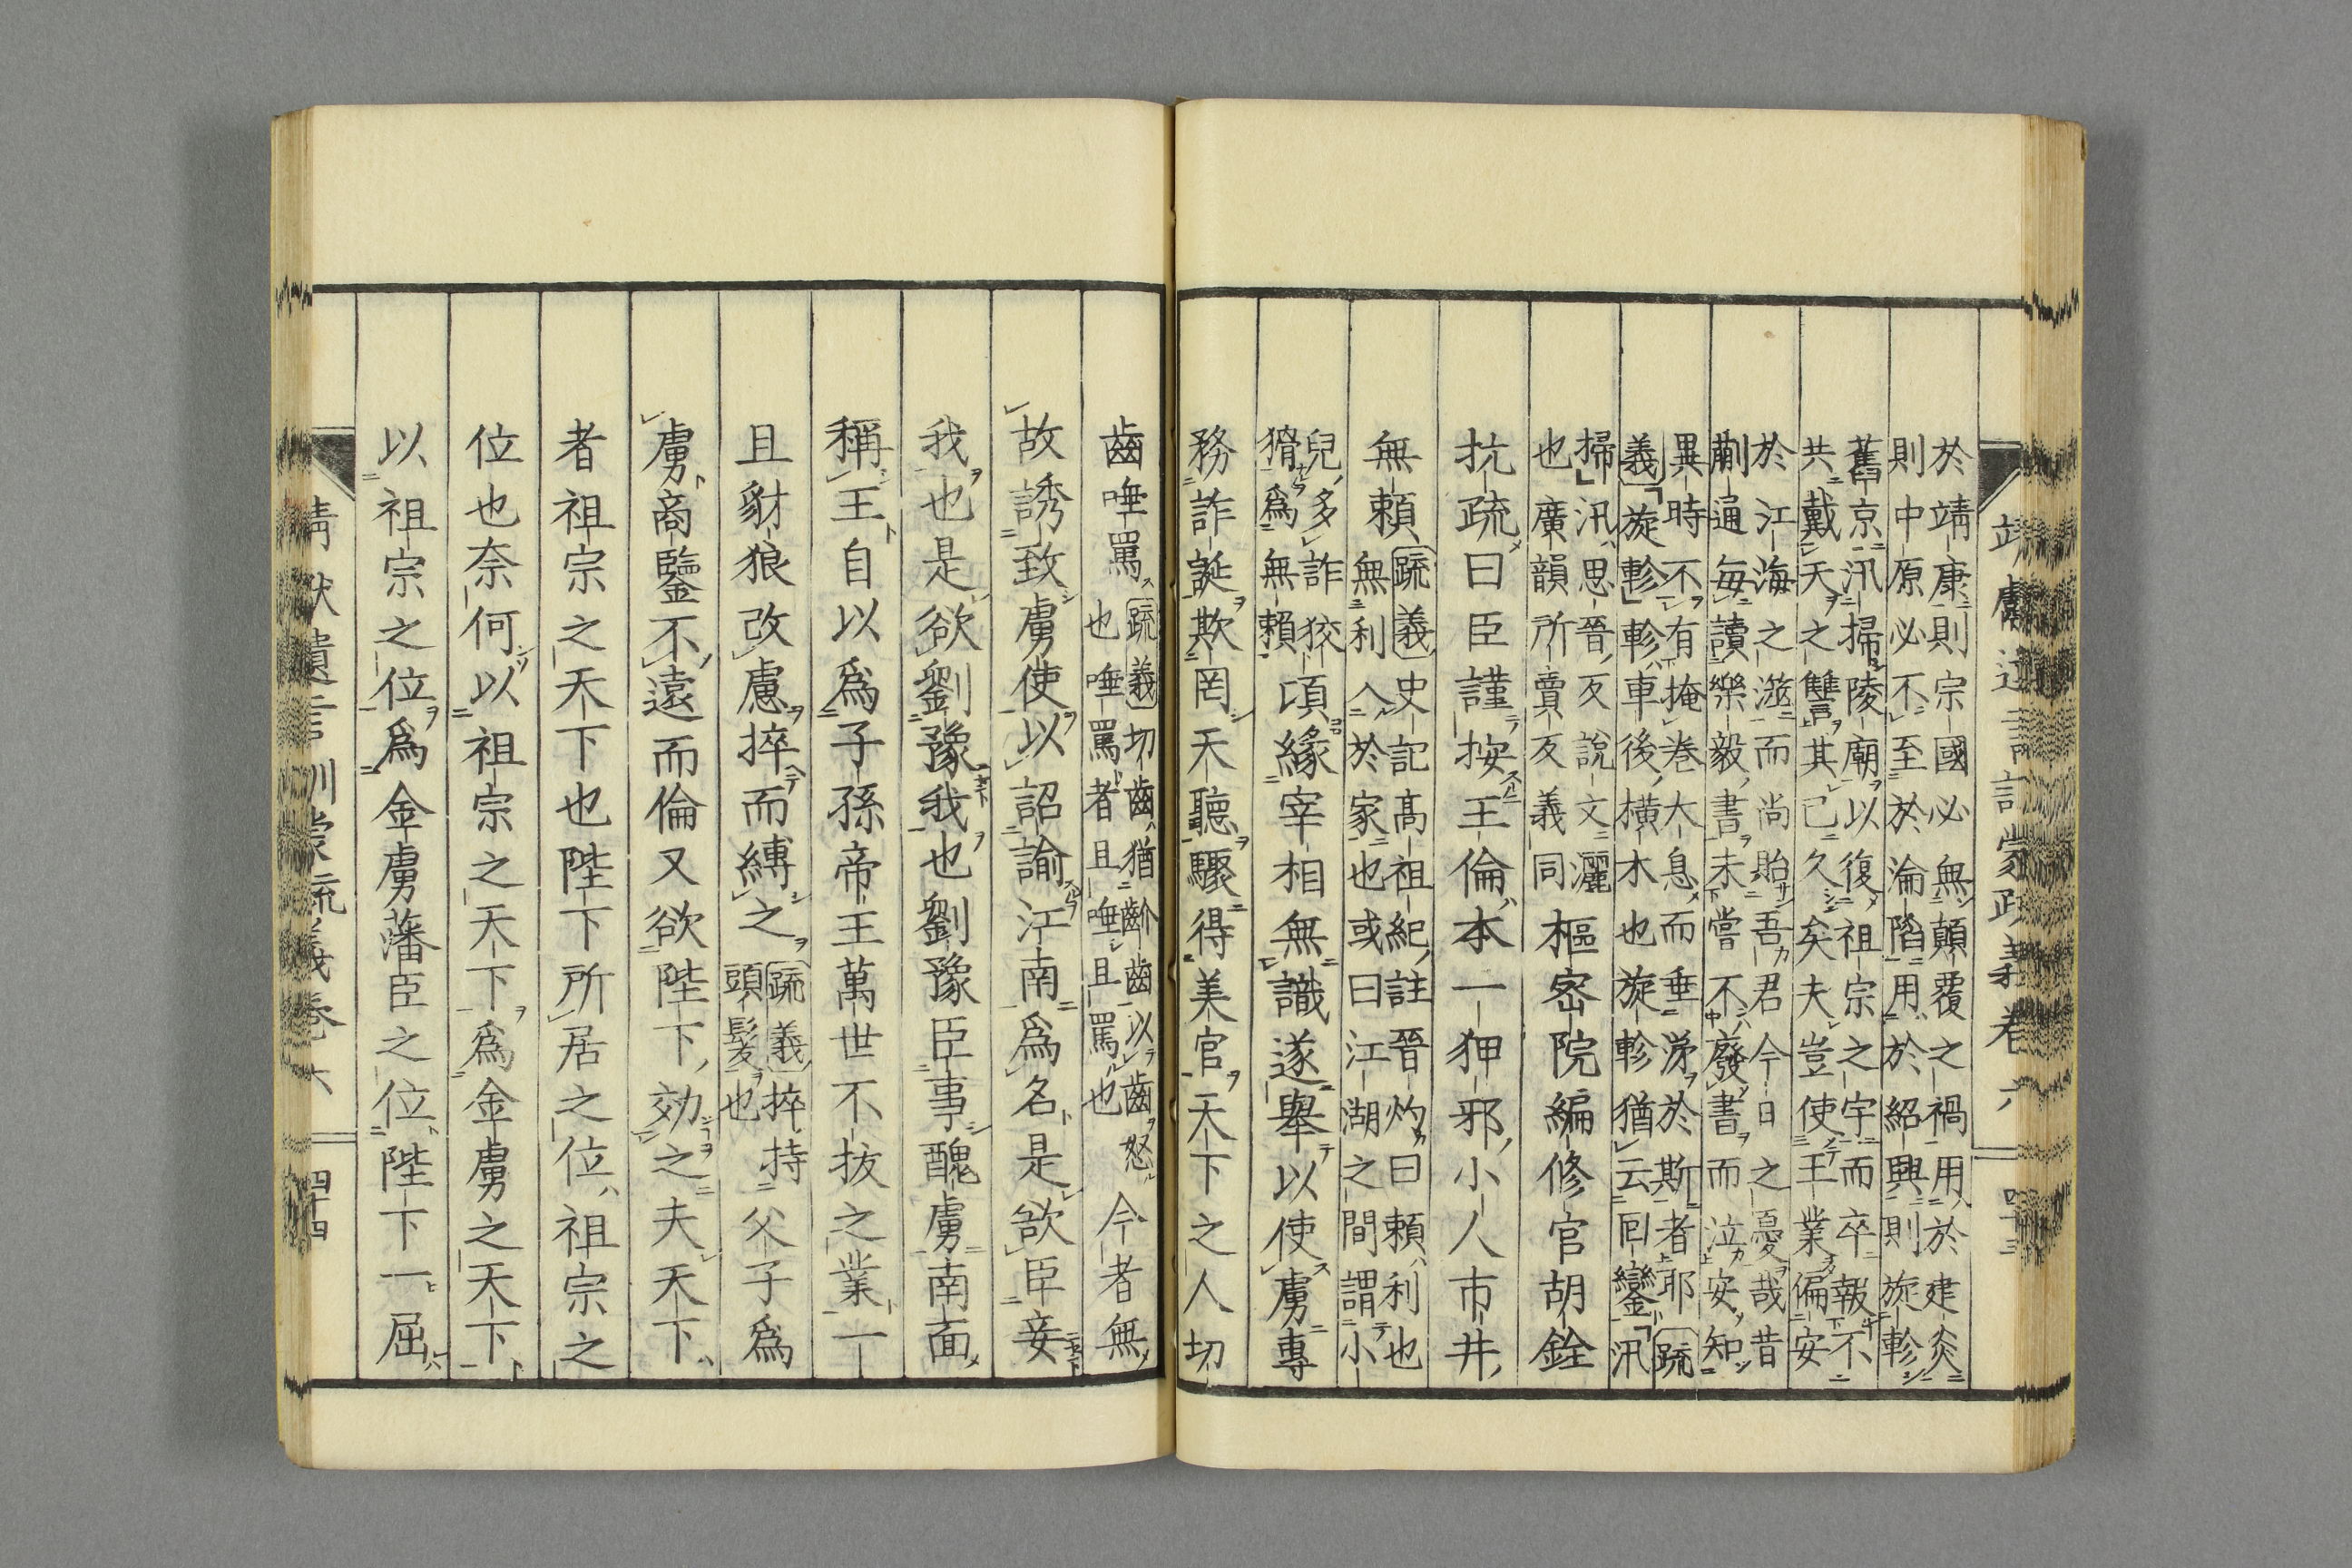 靖獻遺言訓蒙疏義卷六 四十三
於靖康則宗國必無顛覆之禍用於建炎
則中原必不至於淪陷用於紹興則旋軫
舊京汛掃陵廟以復祖宗之宇而卒報不
共戴天之讐其已久矣夫豈使王業偏安
於江海之澨而尚貽吾君今日之憂哉昔
蒯通毎讀樂毅書未嘗不廢書而泣安知
異時不有掩卷大息而垂涕於斯者耶疏
義「旋軫」軫車後横木也旋軫猶云囘鑾「汛
掃」汛思晉反說文灑
也廣韻所賣反義同
樞密院編修官胡銓
抗疏曰臣謹按王倫本一狎邪小人市井
無賴
疏義史記高祖紀註晉灼曰賴利也
無利入於家也或曰江湖之間謂小
兒多詐狡
猾爲無賴
頃緣宰相無識遂舉以使虜專
務詐誕欺罔天聽驟得美官天下之人切
齒唾罵
疏義切齒猶齡齒以齒怒
也唾罵者且唾且罵也
今者無
故誘致虜使以詔諭江南爲名是欲臣妾
我也是欲劉豫我也劉豫臣事醜虜南面
稱王自以爲子孫帝王萬世不拔之業一
且豺狼改慮捽而縛之
疏義捽持
頭髮也
父子爲
虜商鑒不遠而倫又欲陛下効之夫天下
者祖宗之天下也陛下所居之位祖宗之
位也奈何以祖宗之天下爲金虜之天下
以祖宗之位爲金虜藩臣之位陛下一屈
靖獻遺言訓蒙疏義卷六 四十四